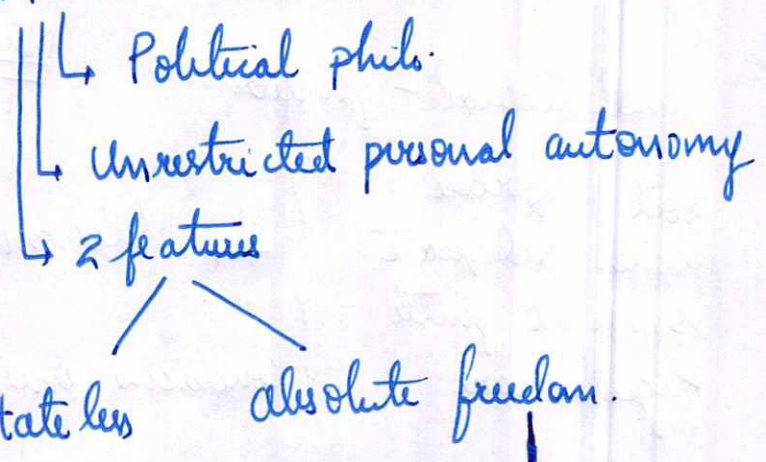 Political philo.
Unrestricted personal autonomy
2 features
tate less absolute freedom.